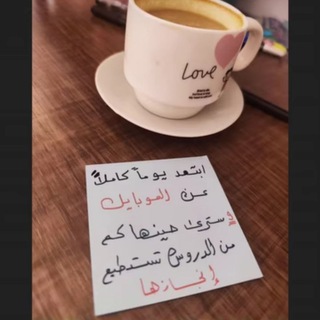 Love
ابتعد يوماً كاملاً
عن الموبايل
وسترى حينها كم
من الدروس تستطيع
إنجازها